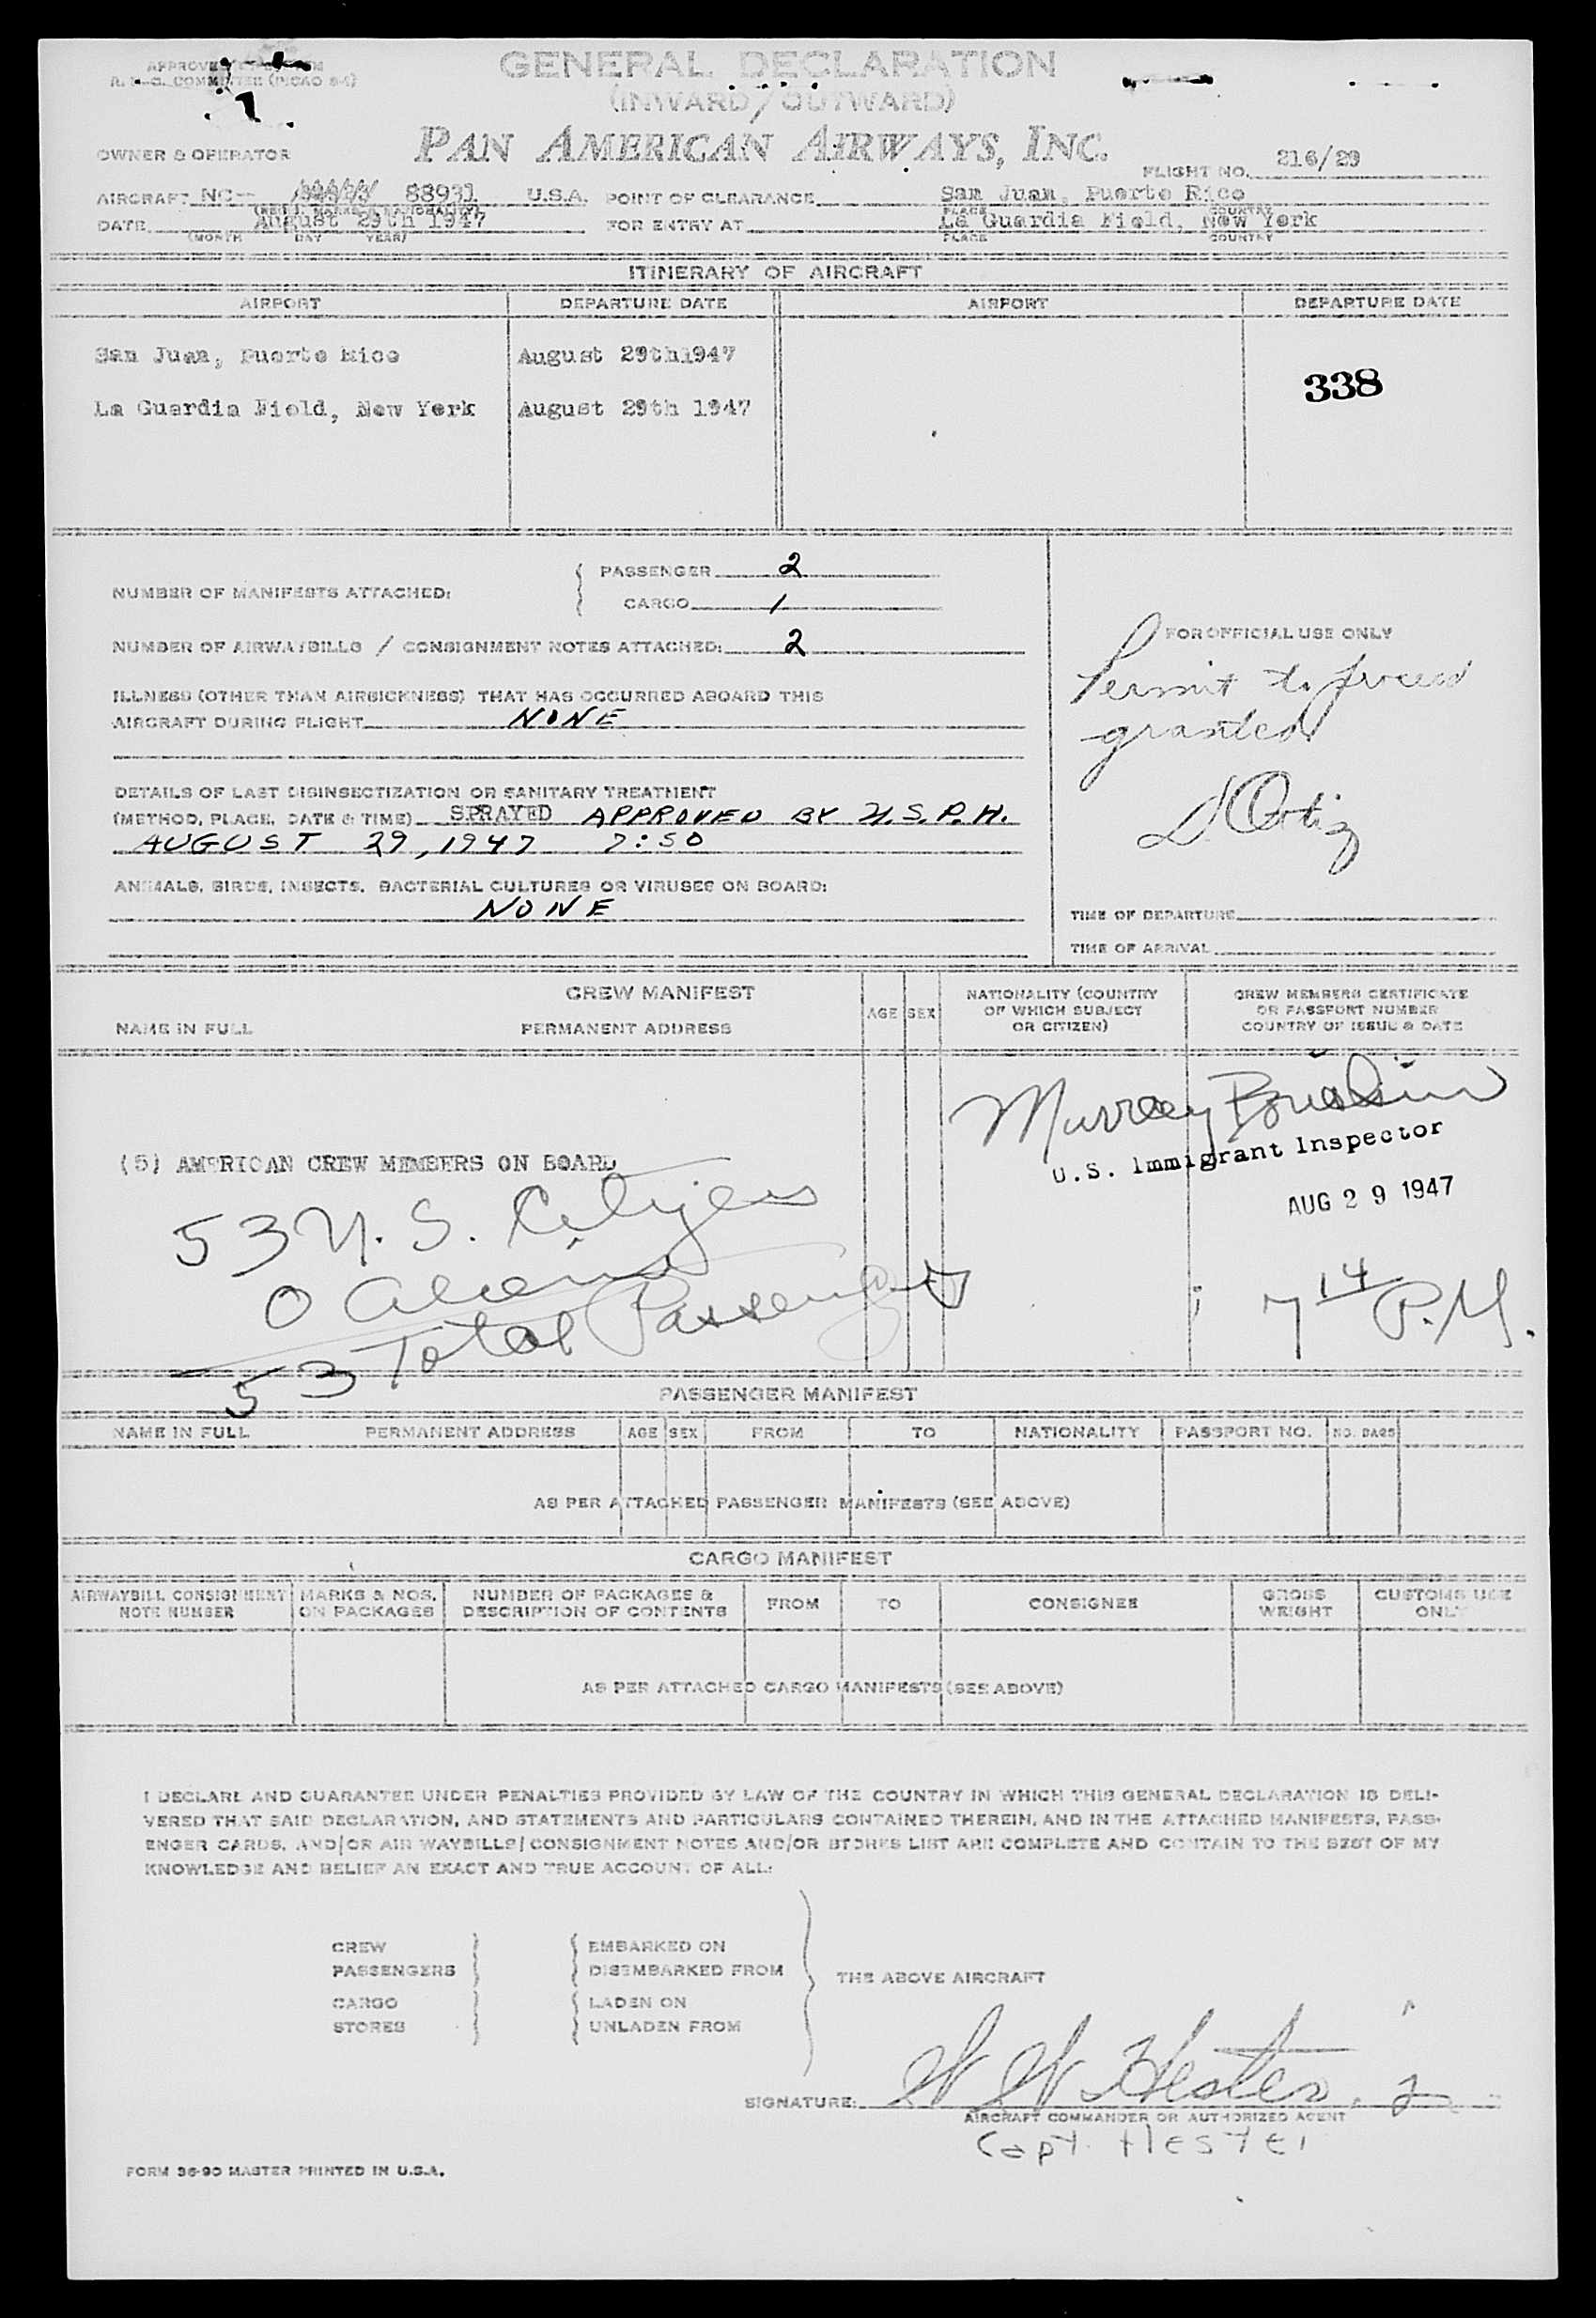 GENERAL DECLARATION
(INWARD / OUTWARD)
PAN AMERICAN AIRWAYS, INC.
OWNER & OPERATOR
FLIGHT NO. 216/29
AIRCRAFT NC- 88931 U.S.A. POINT OF CLEARANCE San Juan, Puerto Rico
PLACE COUNTRY
DATE August 29th 1947 FOR ENTRY AT La Guardia Field, New York
(MONTH DAY YEAR) PLACE COUNTRY
ITINERARY OF AIRCRAFT
AIRPORT DEPARTURE DATE AIRPORT DEPARTURE DATE
San Juan, Puerto Rico August 29th1947
338
La Guardia Field, New York August 29th 1947
NUMBER OF MANIFESTS ATTACHED: PASSENGER 2
CARGO 1
NUMBER OF AIRWAYBILLS / CONSIGNMENT NOTES ATTACHED: 2
ILLNESS (OTHER THAN AIRSICKNESS) THAT HAS OCCURRED ABOARD THIS
AIRCRAFT DURING FLIGHT NONE
DETAILS OF LAST DISINSECTIZATION OR SANITARY TREATMENT
(METHOD, PLACE, DATE & TIME) SPRAYED APPROVED BY U.S.P.H.
AUGUST 29, 1947 7:50
ANIMALS, BIRDS, INSECTS, BACTERIAL CULTURES OR VIRUSES ON BOARD:
NONE
FOR OFFICIAL USE ONLY
Permit to proceed
granted
Ortiz
TIME OF DEPARTURE
TIME OF ARRIVAL
CREW MANIFEST
NAME IN FULL PERMANENT ADDRESS AGE SEX NATIONALITY (COUNTRY OF WHICH SUBJECT OR CITIZEN) CREW MEMBERS CERTIFICATE OR PASSPORT NUMBER COUNTRY OF ISSUE & DATE
Murray
U.S. Immigrant Inspector
AUG 29 1947
(5) AMERICAN CREW MEMBERS ON BOARD
53 U.S. Citizens
0 Aliens
53 Total Passengers
7 14 P.M.
PASSENGER MANIFEST
NAME IN FULL PERMANENT ADDRESS AGE SEX FROM TO NATIONALITY PASSPORT NO. NO. BAGS
AS PER ATTACHED PASSENGER MANIFESTS (SEE ABOVE)
CARGO MANIFEST
AIRWAYBILL CONSIGNMENT NOTE NUMBER MARKS & NOS. ON PACKAGES NUMBER OF PACKAGES & DESCRIPTION OF CONTENTS FROM TO CONSIGNEE GROSS WEIGHT CUSTOMS USE ONLY
AS PER ATTACHED CARGO MANIFESTS (SEE ABOVE)
I DECLARE AND GUARANTEE UNDER PENALTIES PROVIDED BY LAW OF THE COUNTRY IN WHICH THIS GENERAL DECLARATION IS DELI-
VERED THAT SAID DECLARATION, AND STATEMENTS AND PARTICULARS CONTAINED THEREIN, AND IN THE ATTACHED MANIFESTS, PASS-
ENGER CARDS, AND/OR AIR WAYBILLS/CONSIGNMENT NOTES AND/OR STORES LIST ARE COMPLETE AND CONTAIN TO THE BEST OF MY
KNOWLEDGE AND BELIEF AN EXACT AND TRUE ACCOUNT OF ALL:
CREW EMBARKED ON
PASSENGERS DISEMBARKED FROM
THE ABOVE AIRCRAFT
CARGO LADEN ON
STORES UNLADEN FROM
SIGNATURE: W W Hester
AIRCRAFT COMMANDER OR AUTHORIZED AGENT
Capt. Hester
FORM 36-90 MASTER PRINTED IN U.S.A.